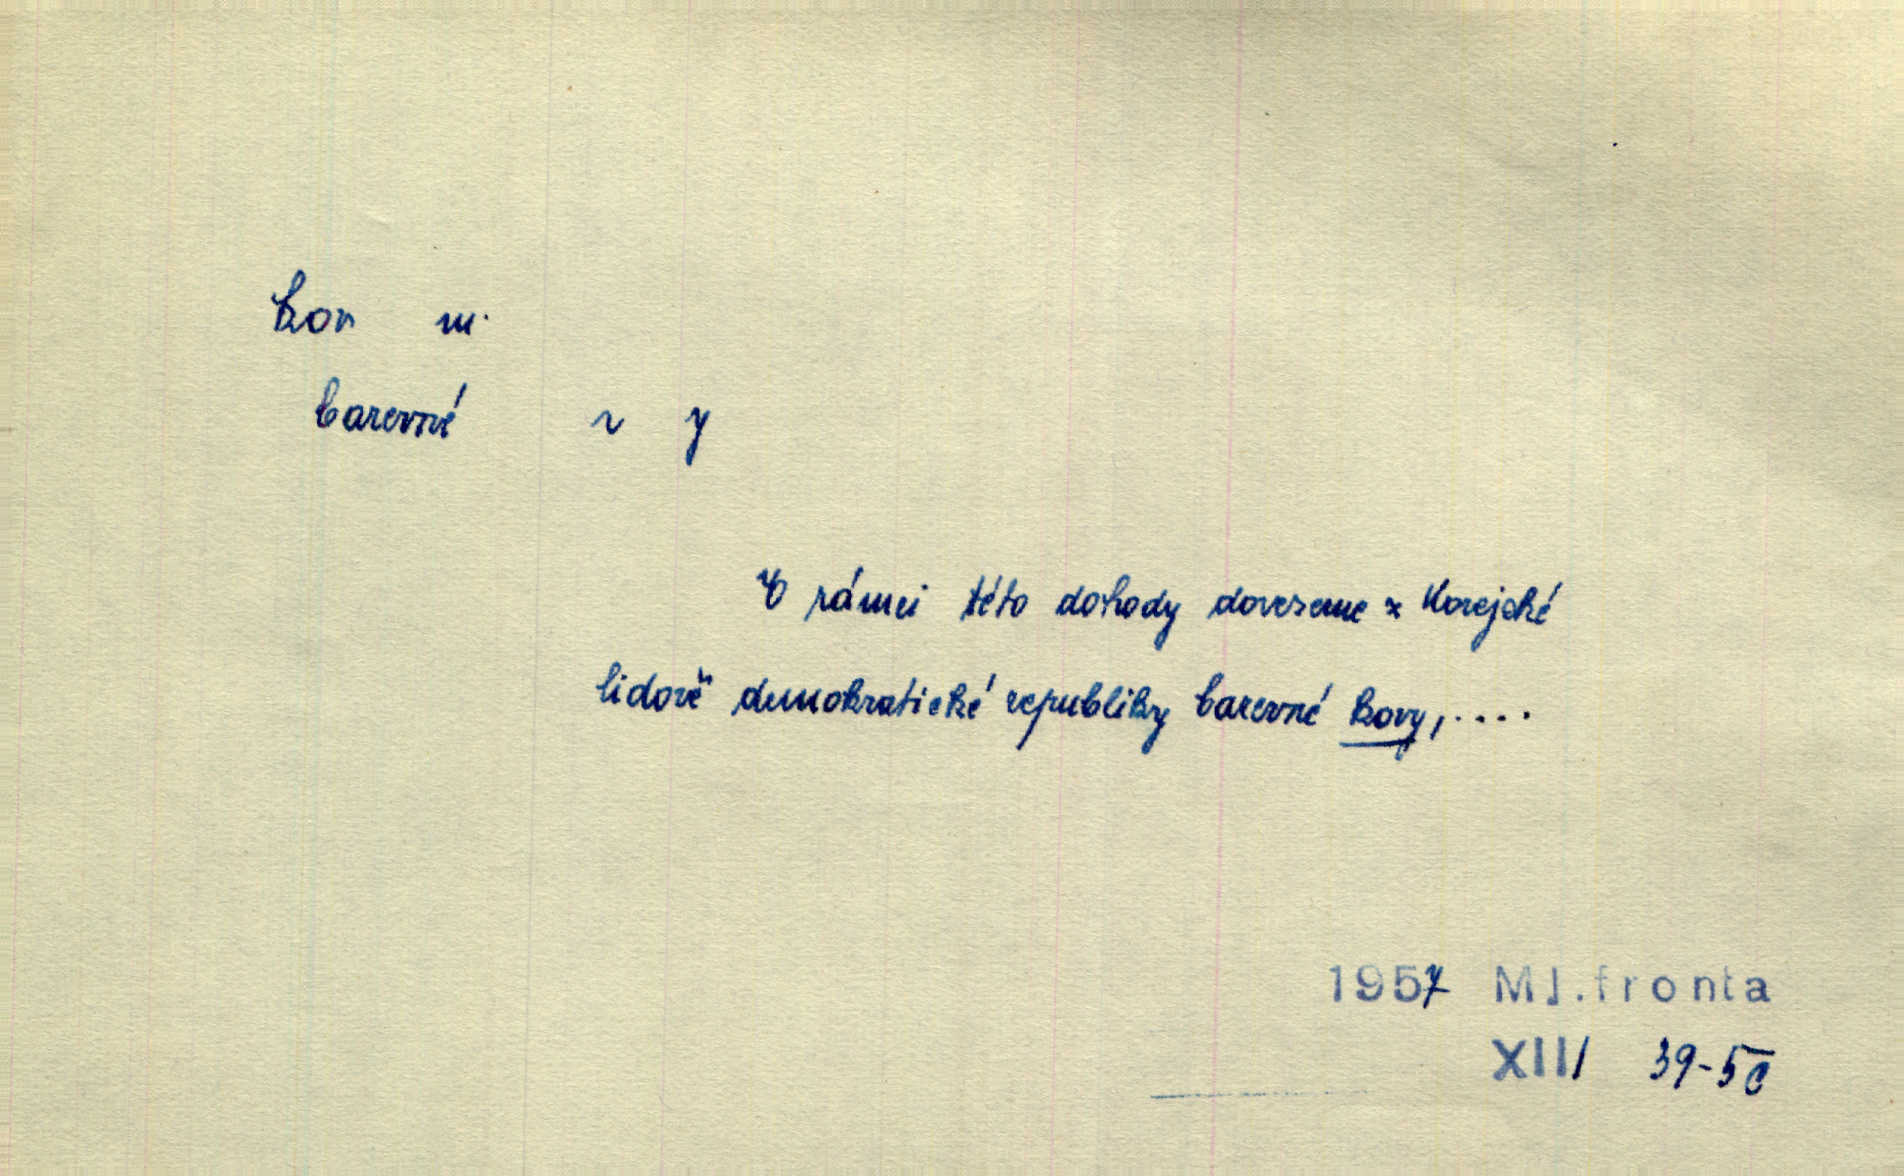 kov m.
barevné ~ y
V rámci této dohody dovezeme z Korejské
lidově demokratické republiky barevné kovy,....
1957 Ml.fronta
XIII 39-5c